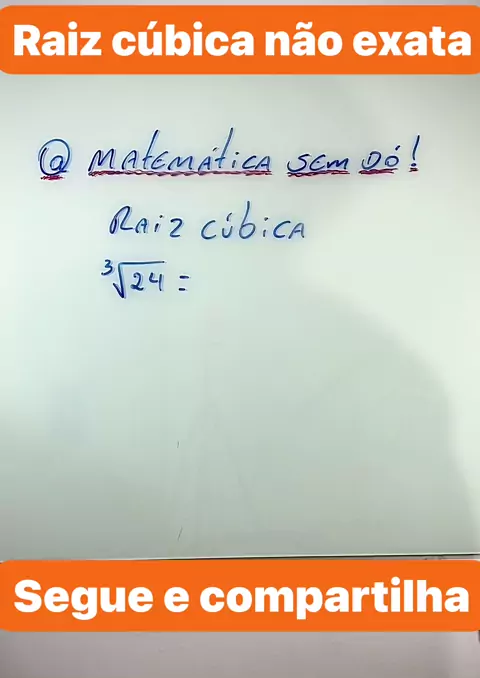 Raiz cúbica não exata
@ MAtEMÁtiCA SEM DÓ!
RAiz CÚbiCA
³√24 =
Segue e compartilha